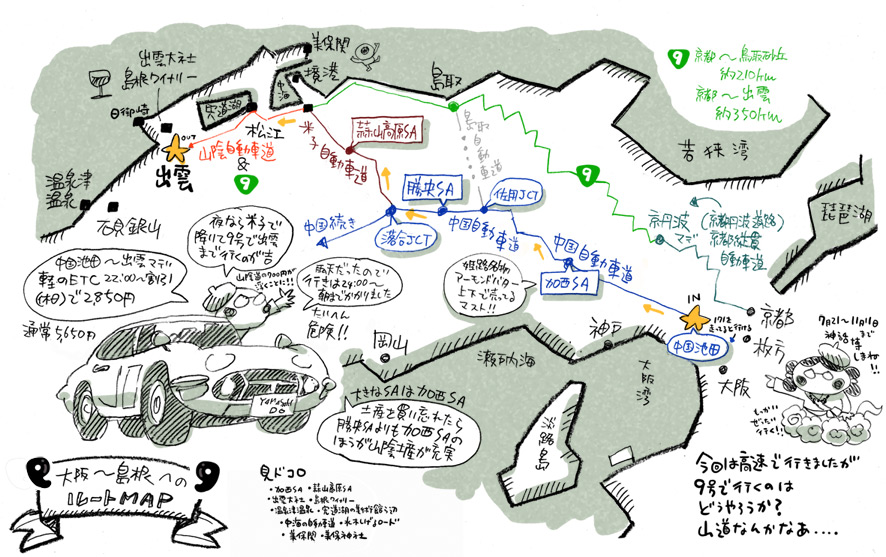 美保関
出雲大社
島根ワイナリー
境港
中海
宍道湖
日御崎
OUT
出雲
松江
山陰自動車道
&
9
米子自動車道
蒜山高原SA
鳥取
鳥取自動車道
9
京都〜鳥取砂丘
約210km
京都〜出雲
約350km
若狭湾
琵琶湖
9
京丹波
マデ
(京都丹波道路)
京都縦貫
自動車道
温泉津
温泉
石見銀山
中国続き
落合JCT
勝央SA
佐用JCT
中国自動車道
中国自動車道
加西SA
IN
171を
走ってると行ける
中国池田
京都
枚方
大阪
神戸
岡山
瀬戸内海
大阪湾
淡路島
夜なら米子で
降りて9号で出雲
まで行くのが吉
山陰道の900円が
浮くことに!!
中国池田〜出雲マデ
軽のETC 22:00〜割引
(休日)で2,850円
通常5,650円
雨天だったので
行きは24:00〜
朝までかかりました
たいへん
危険!!
姫路名物
アーモンドバター
上下で売ってる
マスト!!
大きなSAは加西SA
土産を買い忘れたら
勝央SAよりも加西SAの
ほうが山陰土産が充実
7月21〜11月11日
まで
神話博
しまね!!
しっかい
ぜったい
行く!!
今回は高速で行きましたが
9号で行くのは
どうやろうか?
山道なんかなぁ....
大阪〜島根への
ルートMAP
見ドコロ
・加西SA ・蒜山高原SA
・出雲大社 ・島根ワイナリー
・温泉津温泉 ・宍道湖の美術館らへん
・中海の自動車道 ・水木しげるロード
・美保関 ・美保神社